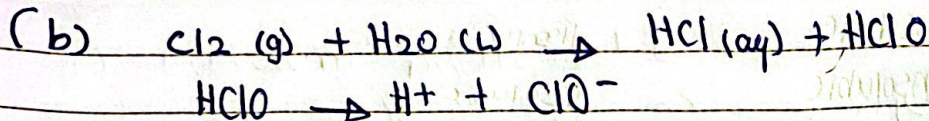 (b) Cl2 (g) + H2O (L) → HCl (aq) + HClO
HClO → H+ + ClO⁻